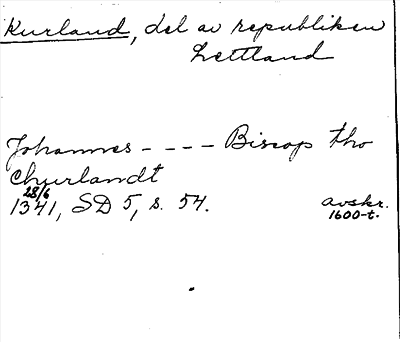 Kurland, del av republiken
Lettland
Johannes - - - - Biscop tho
Churlandt
28/6
1341, SD 5, s. 54.
avskr.
1600-t.